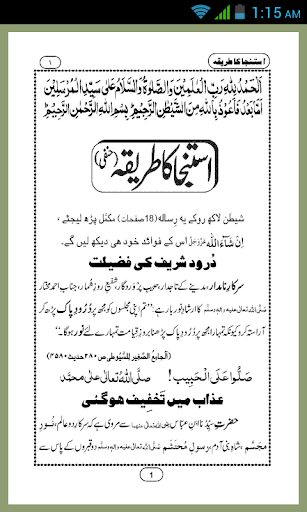 1:15 AM
استنجا کا طریقہ
۱
اَلْحَمْدُ لِلّٰهِ رَبِّ الْعٰلَمِيْنَ وَالصَّلٰوةُ وَالسَّلَامُ عَلٰى سَيِّدِ الْمُرْسَلِيْنَ
اَمَّا بَعْدُ فَاَعُوْذُ بِاللّٰهِ مِنَ الشَّيْطٰنِ الرَّجِيْمِ بِسْمِ اللّٰهِ الرَّحْمٰنِ الرَّحِيْمِ
استنجا کا طریقہ (حنفی)
شیطٰن لاکھ روکے یہ رسالہ (18 صفحات) مکمّل پڑھ لیجئے،
اِنْ شَآءَاللّٰہ عزوجل اس کے فوائد خود ہی دیکھ لیں گے۔
دُرود شریف کی فضیلت
سرکارِ نامدار، مدینے کے تاجدار، حبیبِ پَرْوَرْدگار، شفیعِ روزِ شُمار، جنابِ احمدِ مختار
صلی اللہ تعالیٰ علیہ والہ وسلم کا ارشادِ نور بار ہے: ”تم اپنی مجلسوں کو مجھ پر دُرُودِ پاک پڑھ کر
آراستہ کرو کیونکہ تمہارا مجھ پر دُرُودِ پاک پڑھنا بروزِ قیامت تمہارے لئے نور ہوگا۔“
(اَلْجامِعُ الصَّغِیر لِلسُّیُوطی ص ۲۸۰ حدیث ۴۵۸۰)
صَلُّوْا عَلَى الْحَبِيْب! صلَّى اللّٰهُ تعالٰى على محمَّد
عذاب میں تَخْفِیف ہو گئی
حضرتِ سیّدُنا ابنِ عبّاس رضی اللہ تعالیٰ عنہما سے مروی ہے کہ سرکارِ دو عالم، نُورِ
مُجَسَّم، شاہِ بنی آدم، رسولِ مُحْتَشَم صلی اللہ تعالیٰ علیہ والہ وسلم دو قبروں کے پاس سے
1